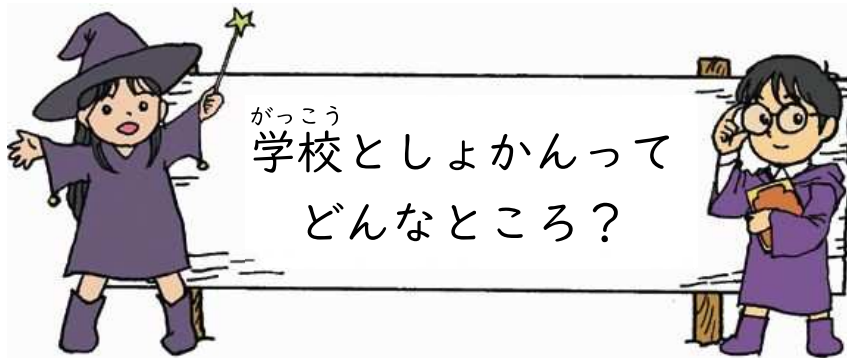 がっこう
学校としょかんって
どんなところ？